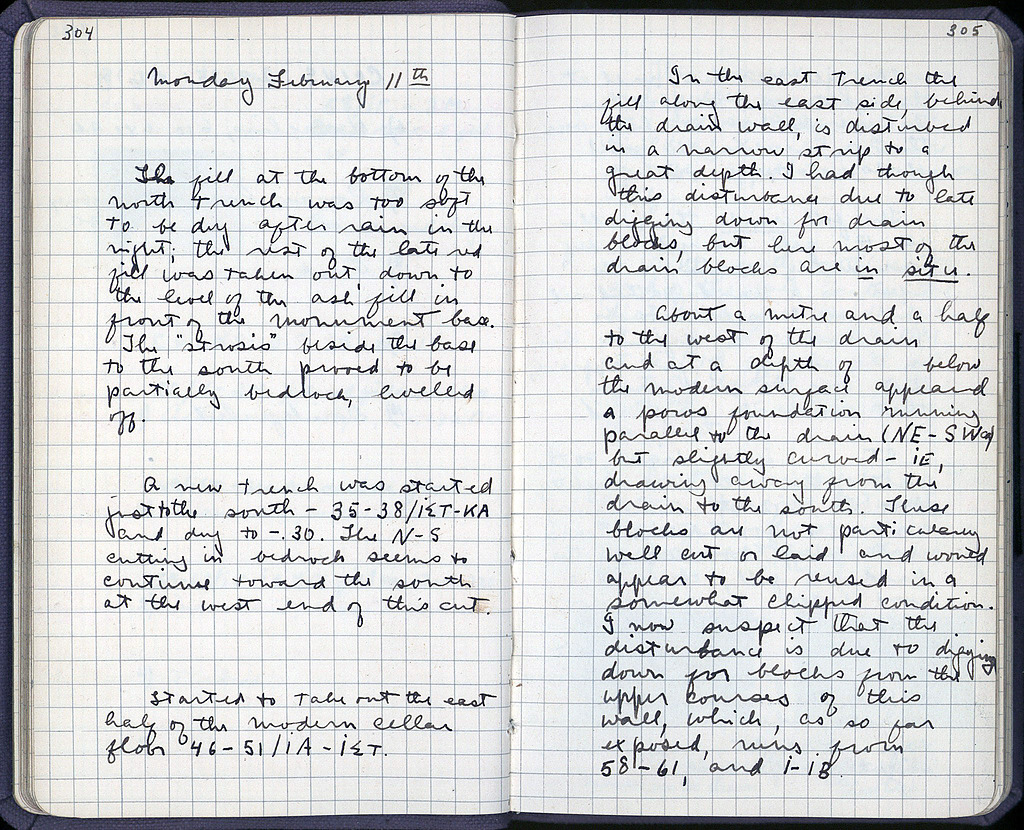 304
Monday February 11th
The fill at the bottom of the
north trench was too soft
to be dug after rain in the
night; the rest of the late red
fill was taken out, down to
the level of the ash fill in
front of the monument base.
The "strosis" beside the base
to the south proved to be
partially bedrock, levelled
off.
A new trench was started
just to the south - 35-38/ΙΣΤ-ΚΑ
and dug to -.30. The N-S
cutting in bedrock seems to
continue toward the south
at the west end of this cut.
Started to take out the east
half of the modern cellar
floor 46-51/ΙΑ-ΙΣΤ.
305
In the east trench the
fill along the east side, behind
the drain wall, is disturbed
in a narrow strip to a
great depth. I had though
this disturbance due to late
digging down for drain
blocks, but here most of the
drain blocks are in situ.
About a metre and a half
to the west of the drain
and at a depth of below
the modern surface appeared
a poros foundation running
parallel to the drain (NE-SW
but slightly curved - iE,
drawing away from the
drain to the south. These
blocks are not particularly
well cut or laid and would
appear to be reused in a
somewhat chipped condition.
I now suspect that the
disturbance is due to digging
down for blocks from the
upper courses of this
wall, which, as so far
exposed, runs from
58-61, and Ι-ΙΒ.